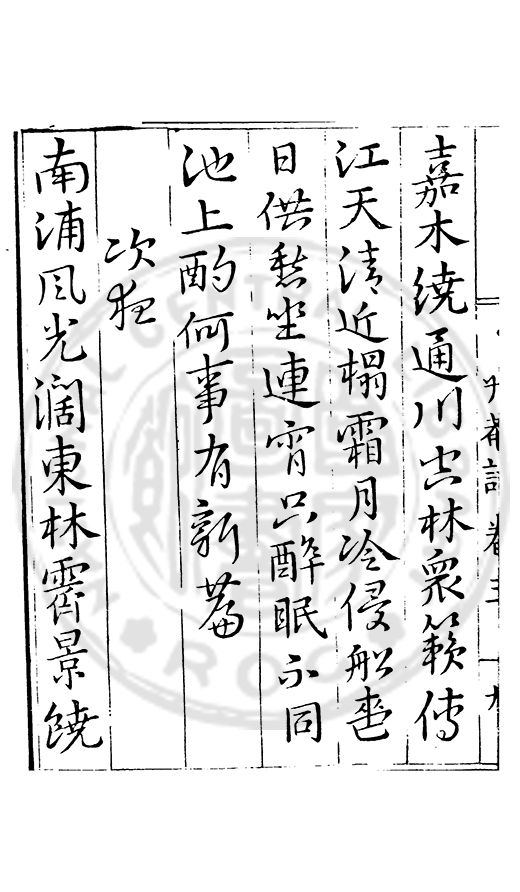 卷三
嘉木繞通川空林衆籟傳
江天清近榻霜月冷侵船盡
日供愁坐連宵只醉眠不同
池上酌何事有新篇
次夜
南浦風光濶東林霽景饒